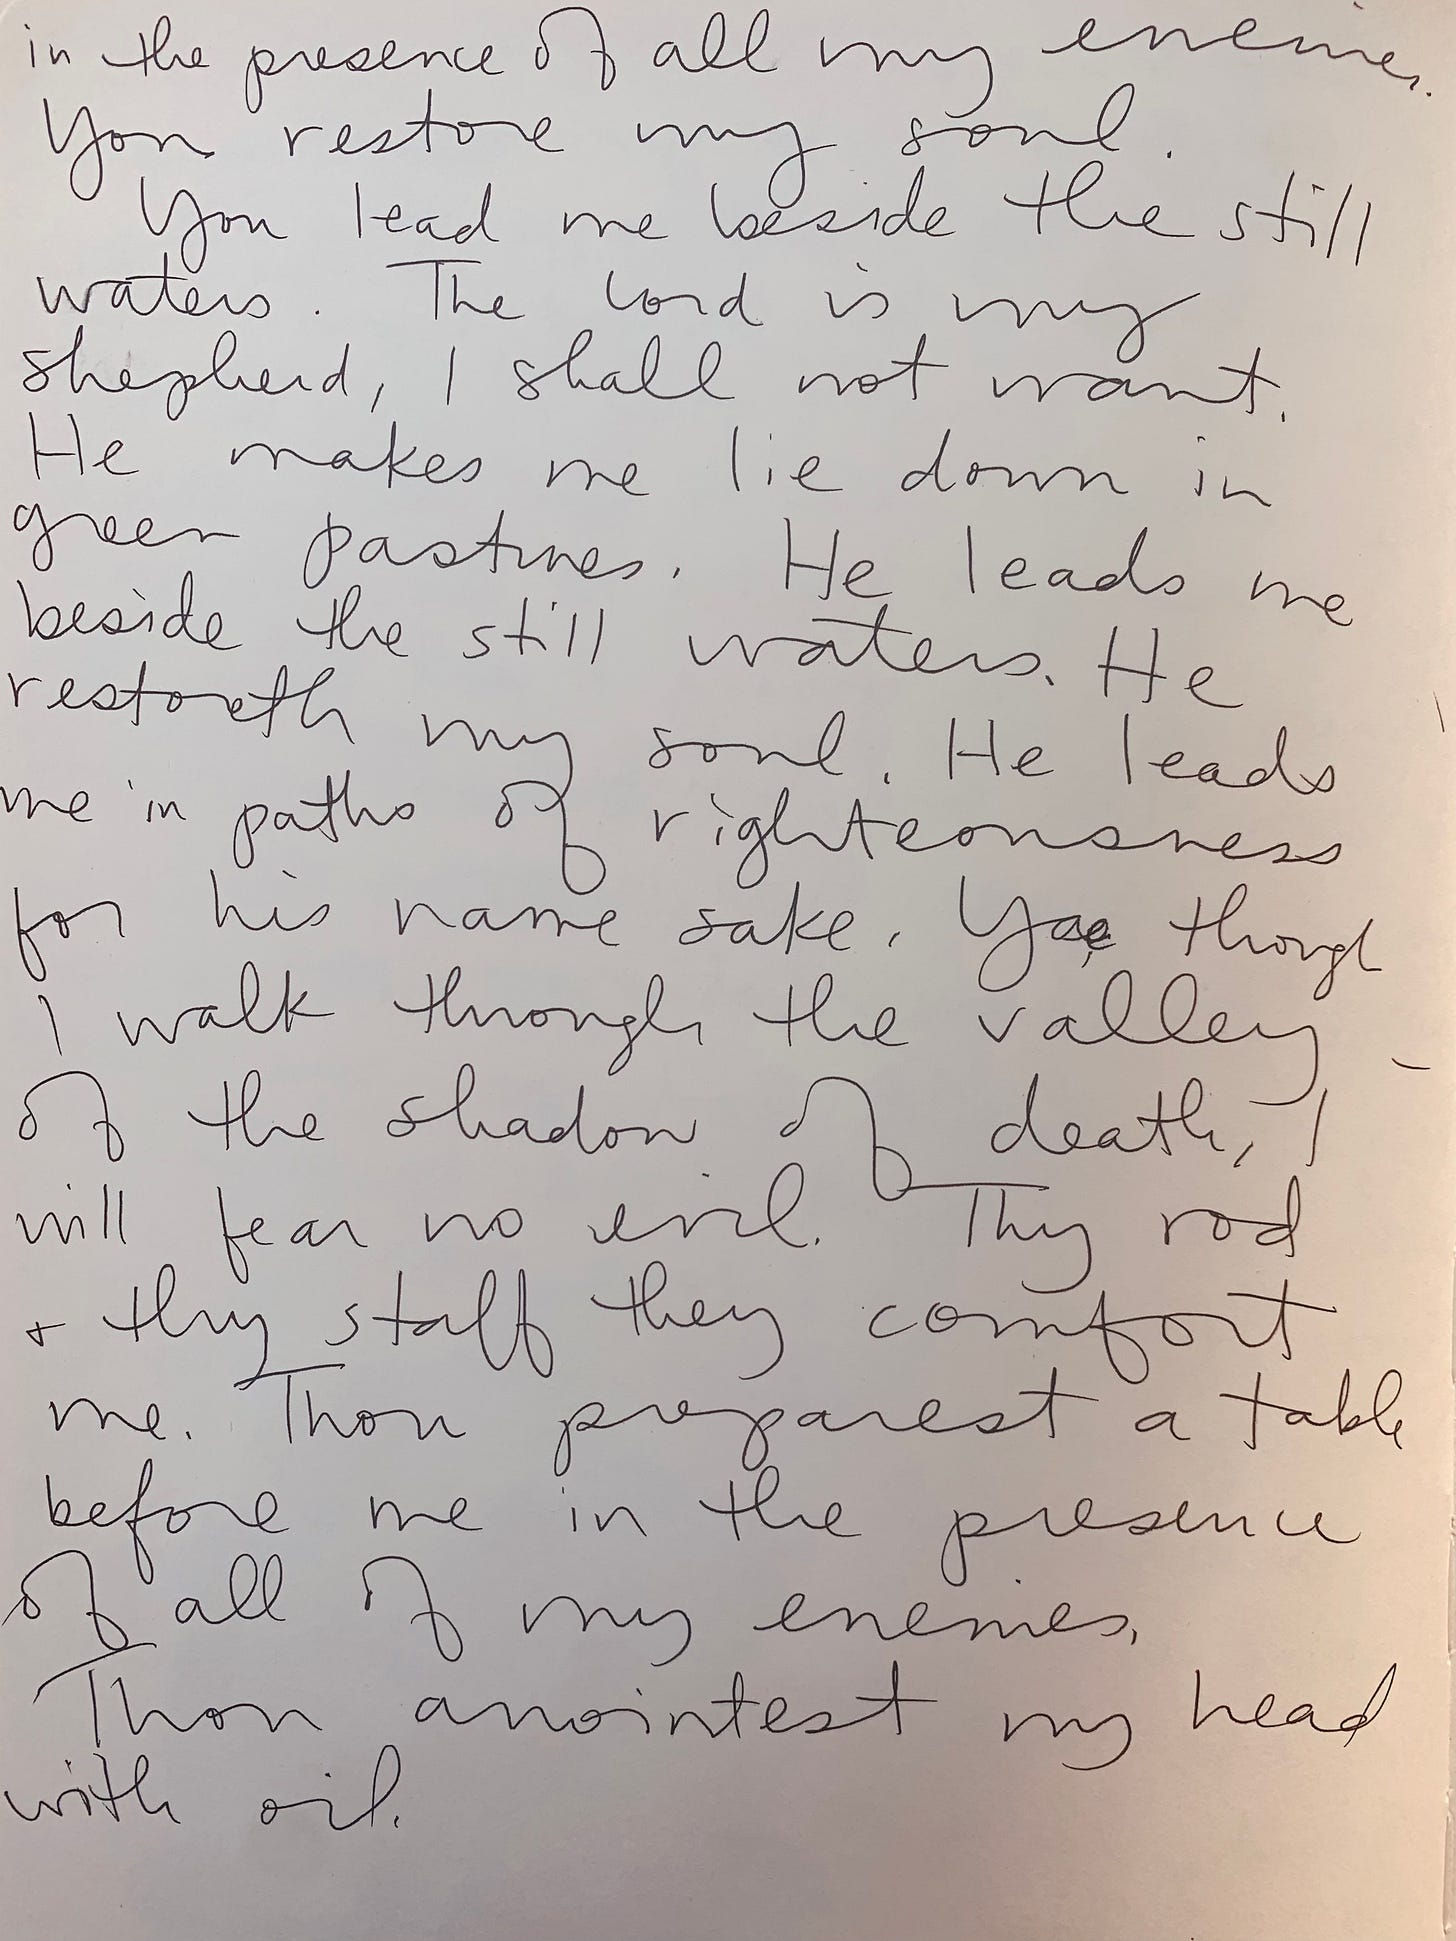 in the presence of all my enemies.
You restore my soul.
You lead me beside the still
waters. The Lord is my
shepherd, I shall not want.
He makes me lie down in
green pastures. He leads me
beside the still waters. He
restoreth my soul. He leads
me in paths of righteousness
for his name sake. Yae though
I walk through the valley
of the shadow of death, I
will fear no evil. Thy rod
+ thy staff they comfort
me. Thou preparest a table
before me in the presence
of all of my enemies.
Thou anointest my head
with oil.